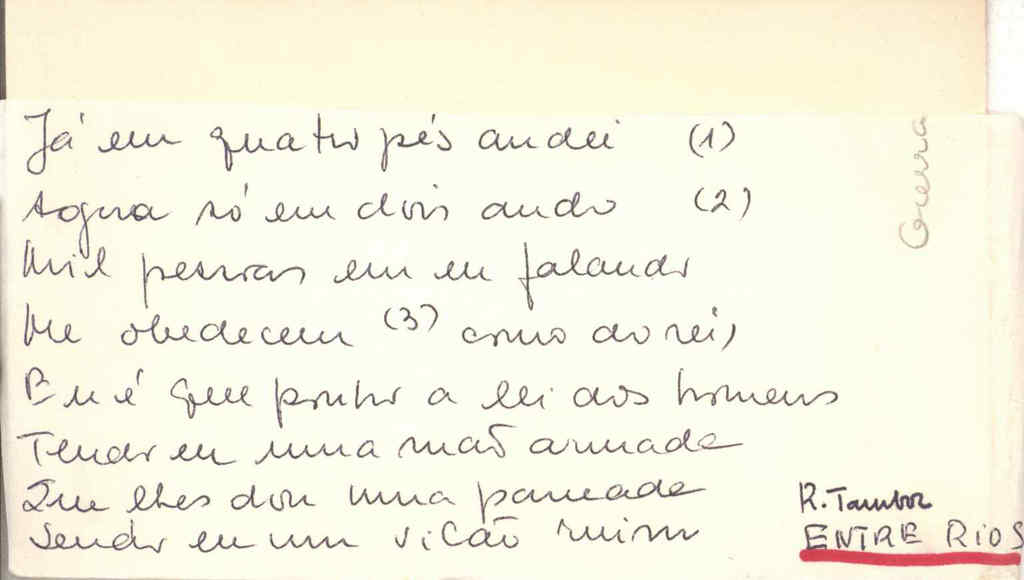 Já em quatro pés andei (1)
Agora só em dois ando (2)
Mil pessoas em eu falando
Me obedecem (3) como ao rei,
Eu é que ponho a lei aos homens
Tendo eu uma mão armada
Que lhes dou uma pancada
Sendo eu um vilão ruim
R. Tambor
ENTRE RIOS
Guerra